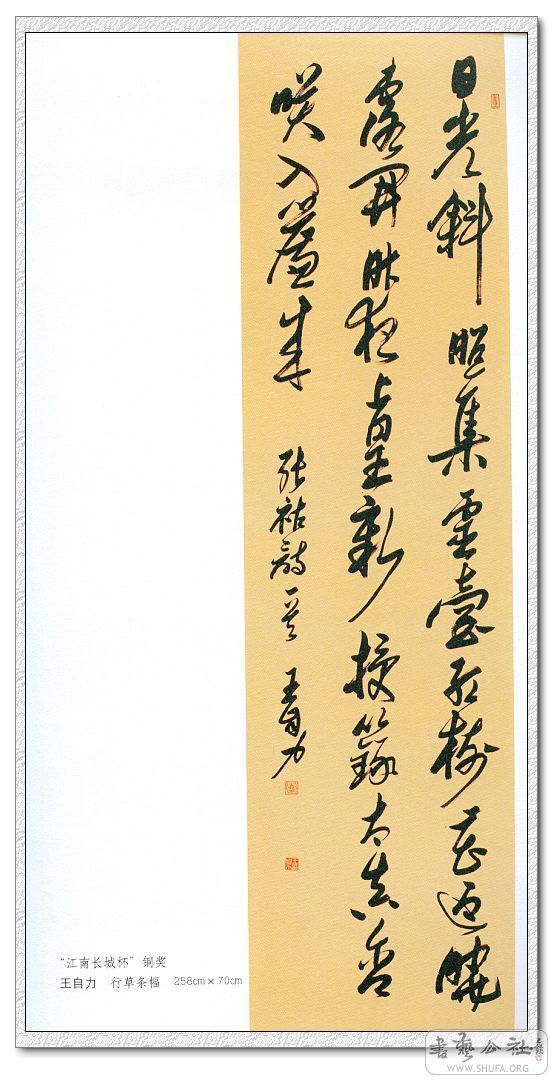 日光斜照集灵台红树花迎晓
露开昨夜上皇新授箓太真含
咲入帘来 张祜诗一首 王自力
“江南长城杯”铜奖
王自力 行草条幅 258cm×70cm
書藝公社
WWW.SHUFA.ORG